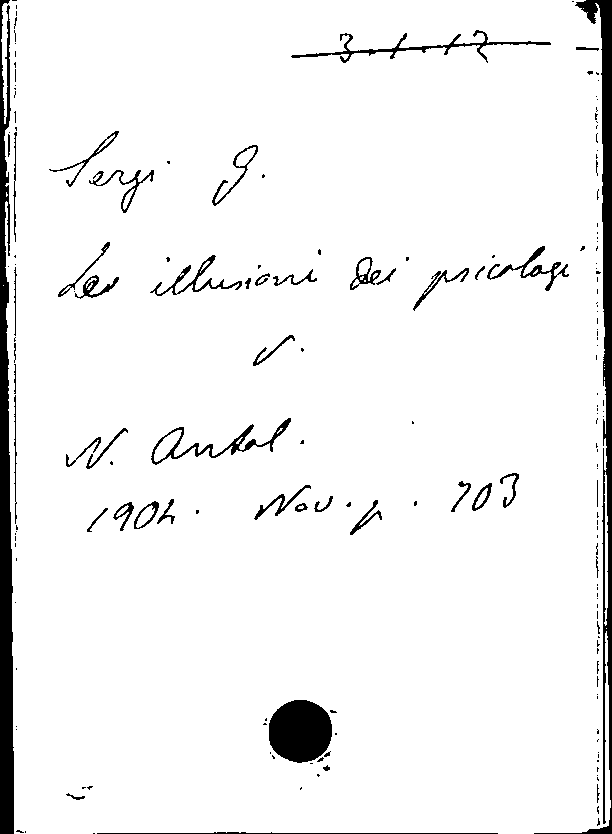 3.1.12
Sergi G.
Les illusioni dei psicologi
v.
N. Antol.
1904. Nov. p. 703